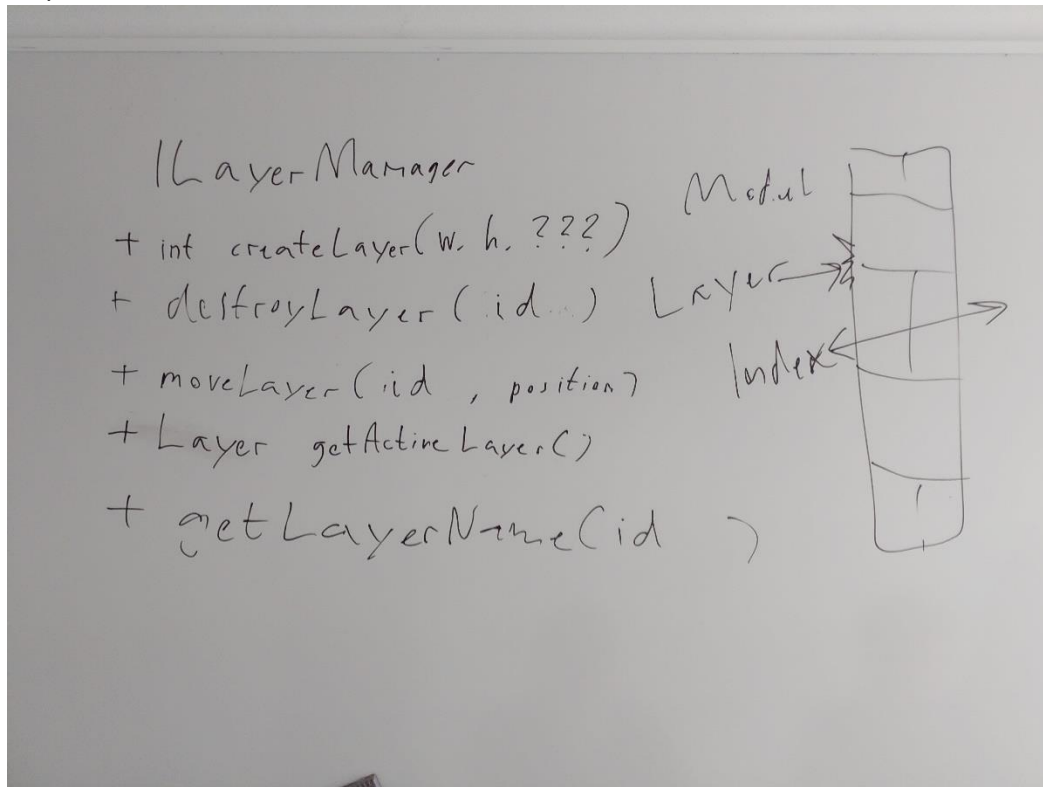 ILayerManager
+ int createLayer(w. h. ???)
+ destroyLayer(id..)
+ moveLayer(id, position)
+ Layer getActiveLayer()
+ getLayerName(id )
Modul
Layer
Index